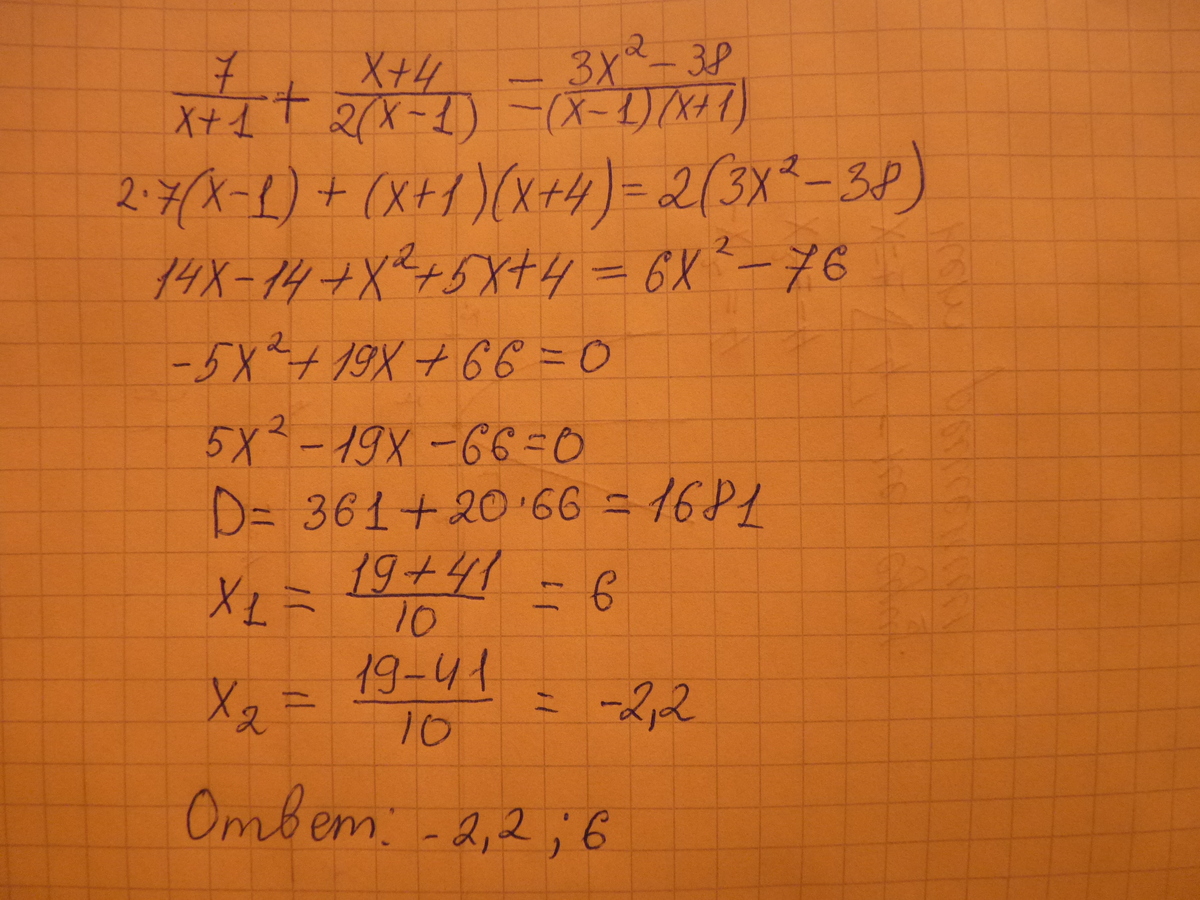 7/(x+1) + (x+4)/(2(x-1)) = (3x² - 38)/((x-1)(x+1))
2·7(x-1) + (x+1)(x+4) = 2(3x² - 38)
14x - 14 + x² + 5x + 4 = 6x² - 76
-5x² + 19x + 66 = 0
5x² - 19x - 66 = 0
D = 361 + 20·66 = 1681
x₁ = (19+41)/10 = 6
x₂ = (19-41)/10 = -2,2
Ответ: -2,2 ; 6